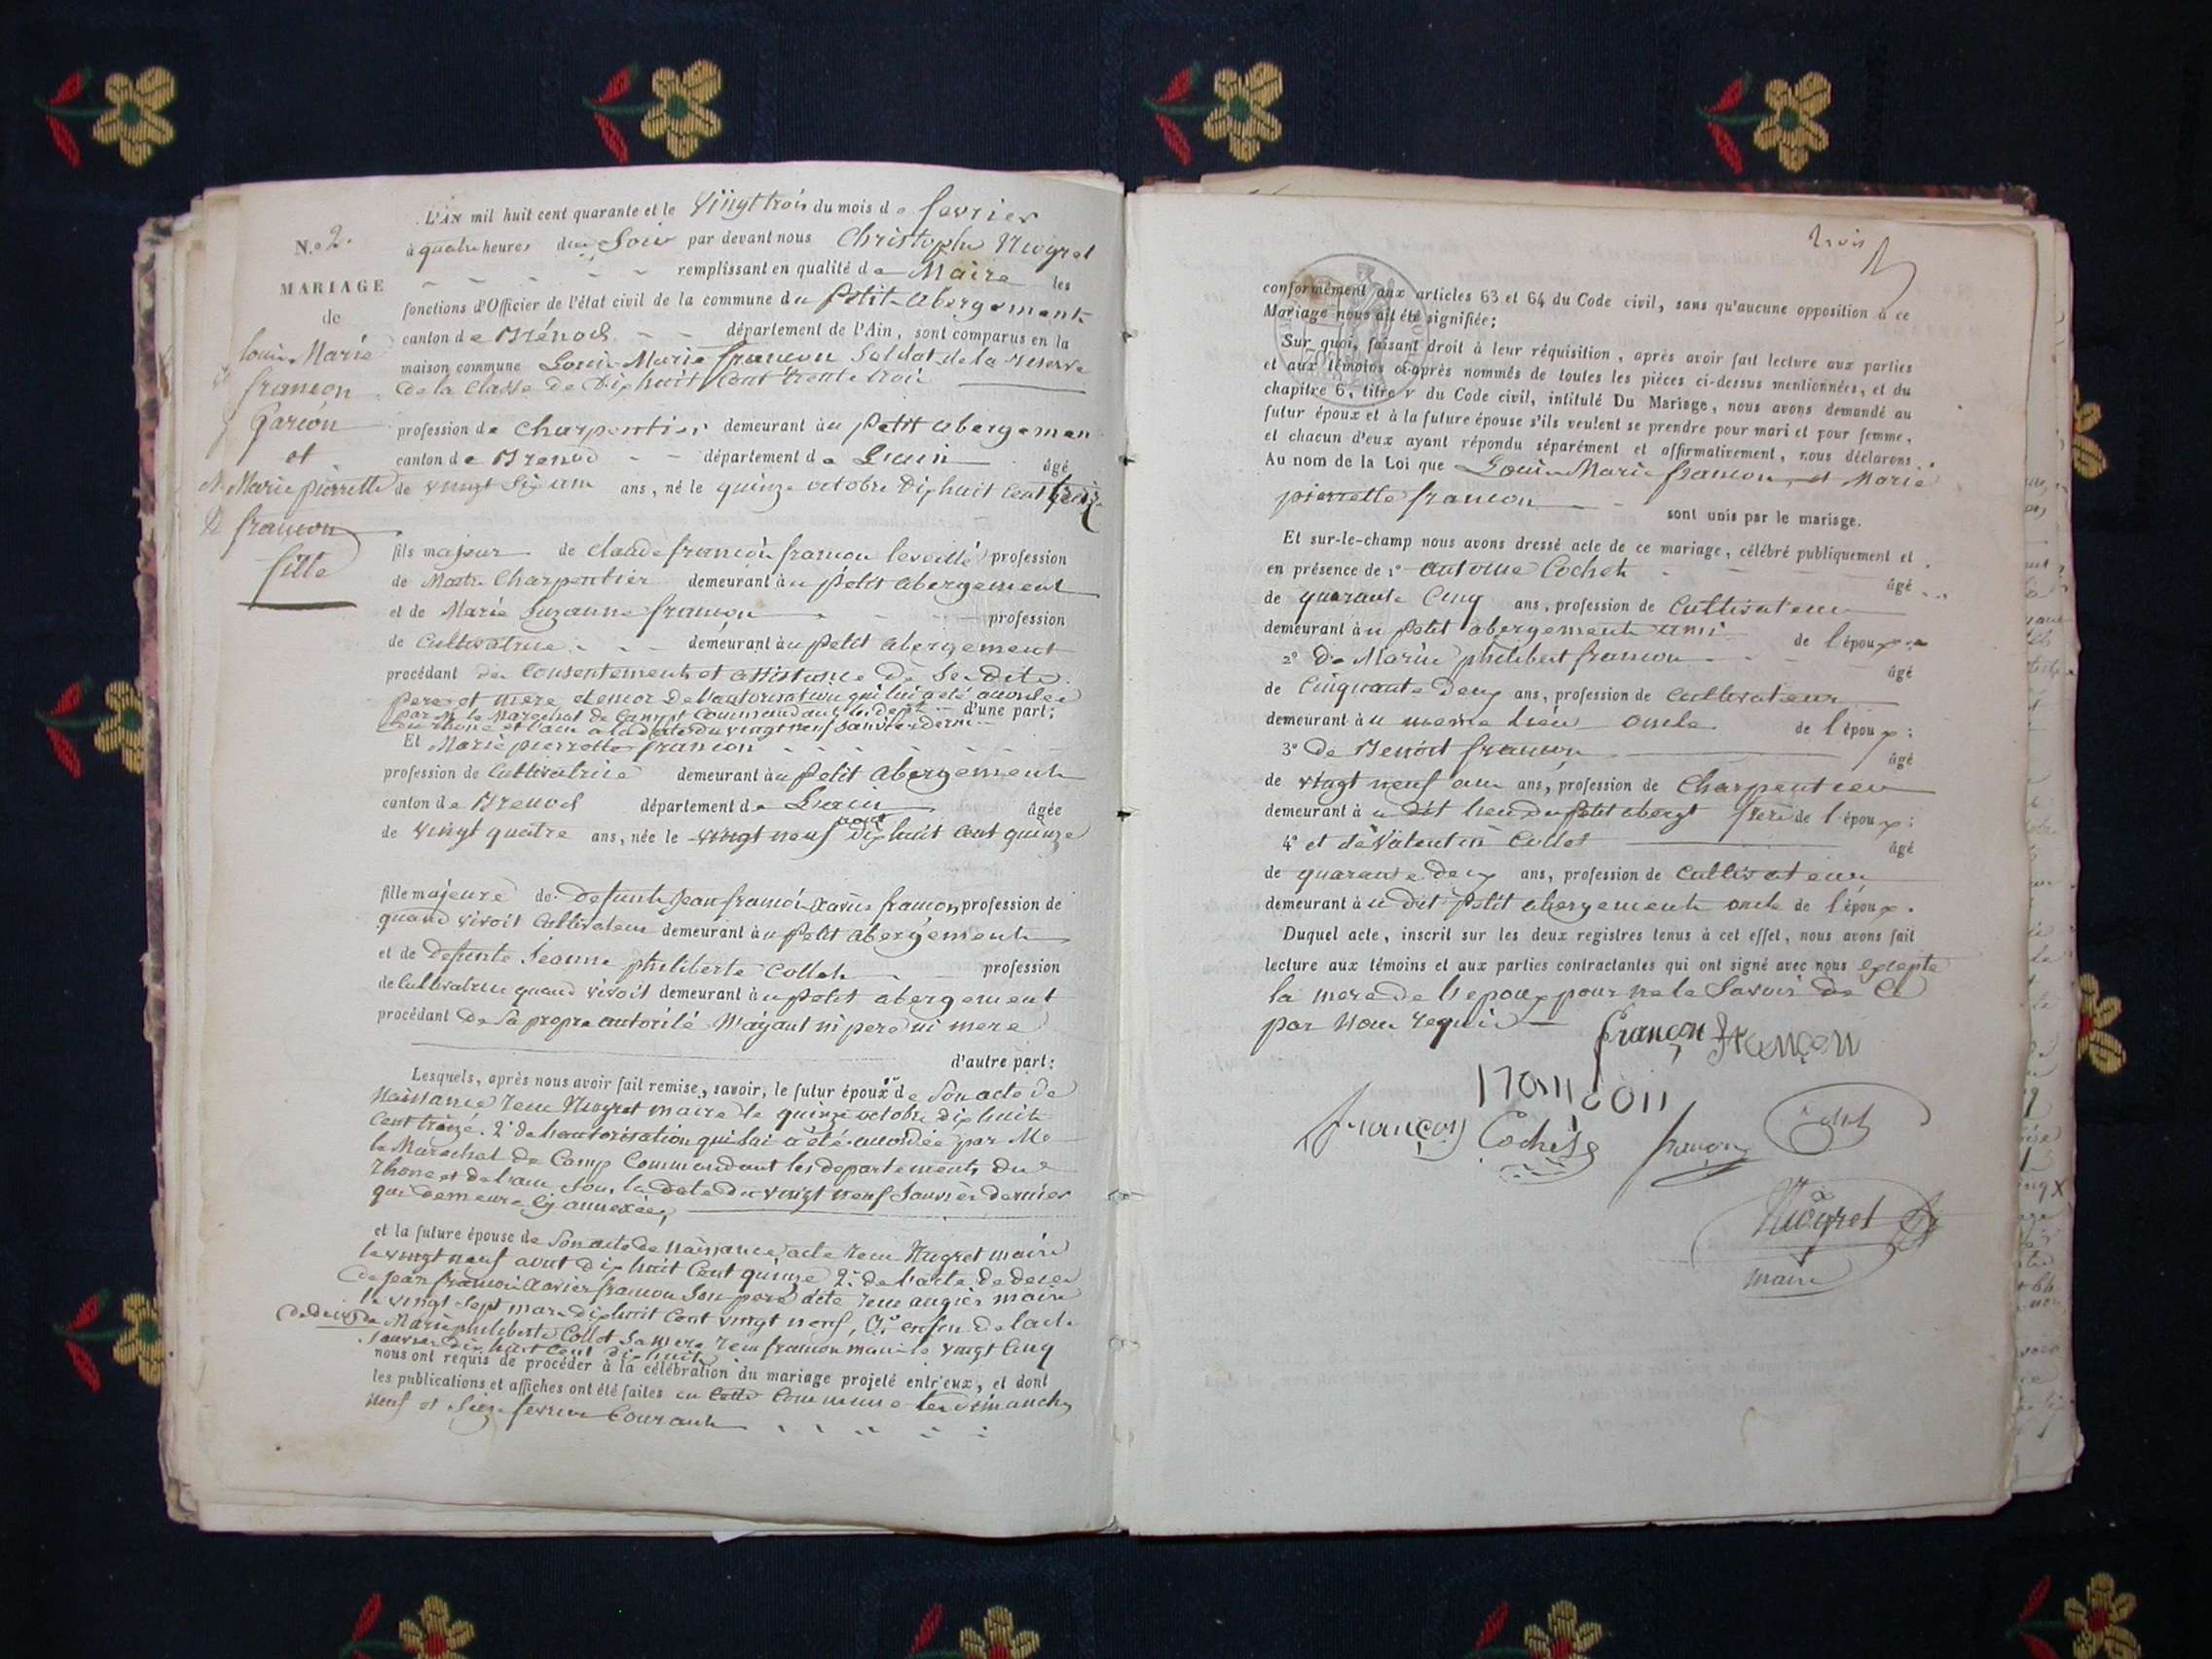 N.o 2.
MARIAGE
de
Louis Marie
francon
Garcon
et
Marie pierrette
francon
fille
L'AN mil huit cent quarante et le Vingt trois du mois de fevrier
à quatre heures du Soir par devant nous Christophe Nugret
remplissant en qualité de Maire les
fonctions d'Officier de l'état civil de la commune du Petit abergement
canton de Brénod département de l'Ain, sont comparus en la
maison commune Louis Marie francon Soldat de la reserve
de la Classe de Dix huit Cent trente trois
profession de Charpentier demeurant au Petit abergemen
canton de Brenod département de L'ain âgé
de vingt Six ans ans, né le quinze octobre Dix huit Cent treize
fils majeur de claude françois francon leveillé profession
de Maitre Charpentier demeurant au Petit abergement
et de Marie Suzanne francon profession
de Cultivatrice demeurant au Petit abergement
procédant du Consentement et assistance de Ses dits
Pere et mere et encor De l'autorisation qui lui a été accordée
par Mr le Marechal de Camp Commandant les dept d'une part;
du rhone et l'ain a la date du vingt neuf Janvier dernier
Et Marie pierrette francon
profession de Cultivatrice demeurant au Petit Abergement
canton de Brenod département de L'ain âgée
aout
de vingt quatre ans, née le vingt neuf dix huit Cent quinze
fille majeure de defunt Jean françois Xavier francon profession de
quand vivoit Cultivateur demeurant au Petit Abergement
et de defunte Jeanne philiberte Collet profession
de Cultivatrice quand vivoit demeurant au Petit abergement
procédant de Sa propre autorité N'ayant ni pere ni mere
d'autre part:
Lesquels, après nous avoir fait remise, savoir, le futur époux 1º de Son acte de
Naissance reçu Nugret maire le quinze octobre dix huit
Cent treize. 2º de l'autorisation qui lui a été accordée par Mr
le Marechal de Camp Commandant les departements du
Rhone et de l'ain Sous la date du vingt neuf Janvier dernier
qui demeure Cy annexée,
et la future épouse de Son acte de Naissance acte reçu Nugret maire
le vingt neuf aout Dix huit Cent quinze 2º de l'acte de deces
de Jean françois Xavier francon Son pere acte reçu augier maire
le vingt Sept mars dix huit Cent vingt neuf, 3º enfin de l'acte
de deces de Marie philiberte Collet Sa mere reçu francon maire le vingt Cinq
Janvier dix huit Cent dix huit
nous ont requis de procéder à la célébration du mariage projeté entr'eux, et dont
les publications et affiches ont été faites en Cette Commune les dimanches
Neuf et Seize fevrier Courant
trois
conformément aux articles 63 et 64 du Code civil, sans qu'aucune opposition à ce
Mariage nous ait été signifiée;
Sur quoi, faisant droit à leur réquisition, après avoir fait lecture aux parties
et aux témoins ci-après nommés de toutes les pièces ci-dessus mentionnées, et du
chapitre 6, titre v du Code civil, intitulé Du Mariage, nous avons demandé au
futur époux et à la future épouse s'ils veulent se prendre pour mari et pour femme,
et chacun d'eux ayant répondu séparément et affirmativement, nous déclarons
Au nom de la Loi que Louis Marie francon et Marie
pierrette francon sont unis par le mariage.
Et sur-le-champ nous avons dressé acte de ce mariage, célébré publiquement et
en présence de 1º Antoine Cochet âgé
de quarante Cinq ans, profession de Cultivateur
demeurant au Petit abergement ami de l'époux
2º De Marie philibert francon âgé
de Cinquante Deux ans, profession de Cultivateur
demeurant au meme lieu oncle de l'époux;
3º de Benoit francon âgé
de vingt neuf ans ans, profession de Charpentier
demeurant au dit lieu du Petit abergt frere de l'époux;
4º et de Valentin Collet âgé
de quarante deux ans, profession de Cultivateur
demeurant au dit Petit abergement oncle de l'époux.
Duquel acte, inscrit sur les deux registres tenus à cet effet, nous avons fait
lecture aux témoins et aux parties contractantes qui ont signé avec nous excepté
la mere de l'epoux pour ne le Savoir de Ce
par Nous requis
françon françon
françon
françon Cochet françon
Nugret
maire